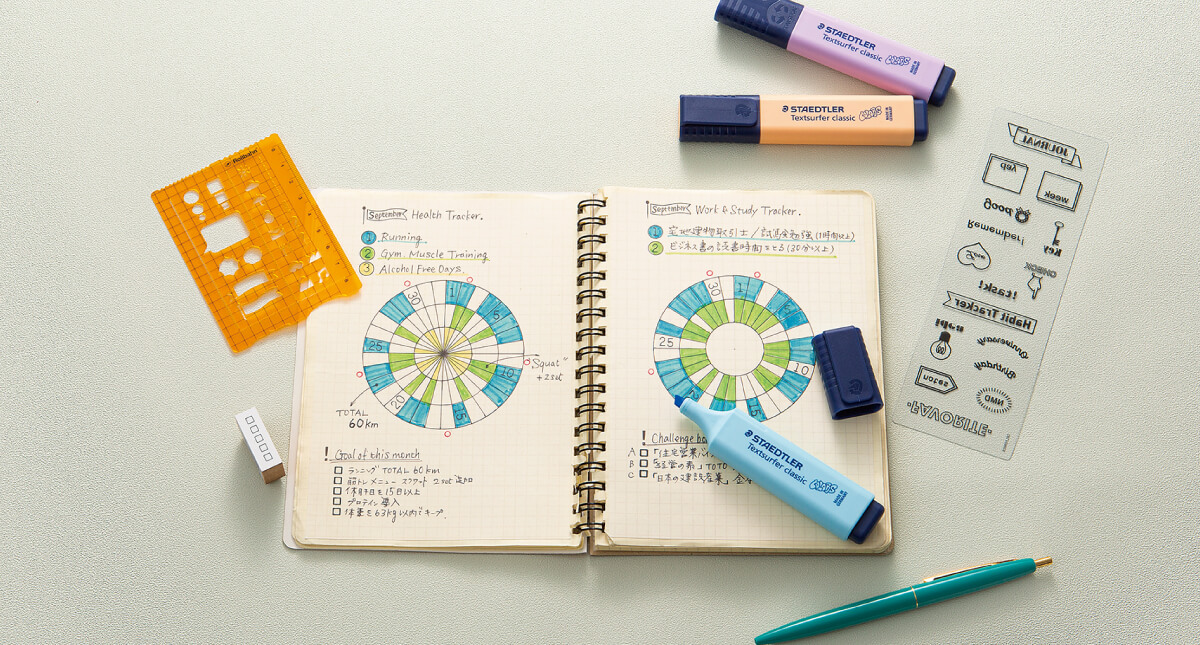 STAEDTLER
Textsurfer classic
MADE IN GERMANY
STAEDTLER
Textsurfer classic
MADE IN GERMANY
Rollbahn
September Health Tracker.
1 Running
2 Gym. Muscle Training
3 Alcohol Free Days.
30
1
5
25
10
20
15
"Squat"
+2set
TOTAL
60km
! Goal of this month
ランニング TOTAL 60km
筋トレメニュー スクワット 2set 追加
休肝日を15日以上
プロテイン導入
体重を63kg以内でキープ.
September Work & Study Tracker.
1 宅地建物取引士/試験勉強(1時間以上)
2 ビジネス書の読書時間をとる(30分以上)
30
1
5
25
10
15
! Challenge
A
B
C 「日本の建設産業」
STAEDTLER
Textsurfer classic
MADE IN GERMANY
JOURNAL
day
week
good
Key
Remember!
CHECK
!task!
Habit Tracker
idea
Anniversary
Birthday
season
FAVORITE